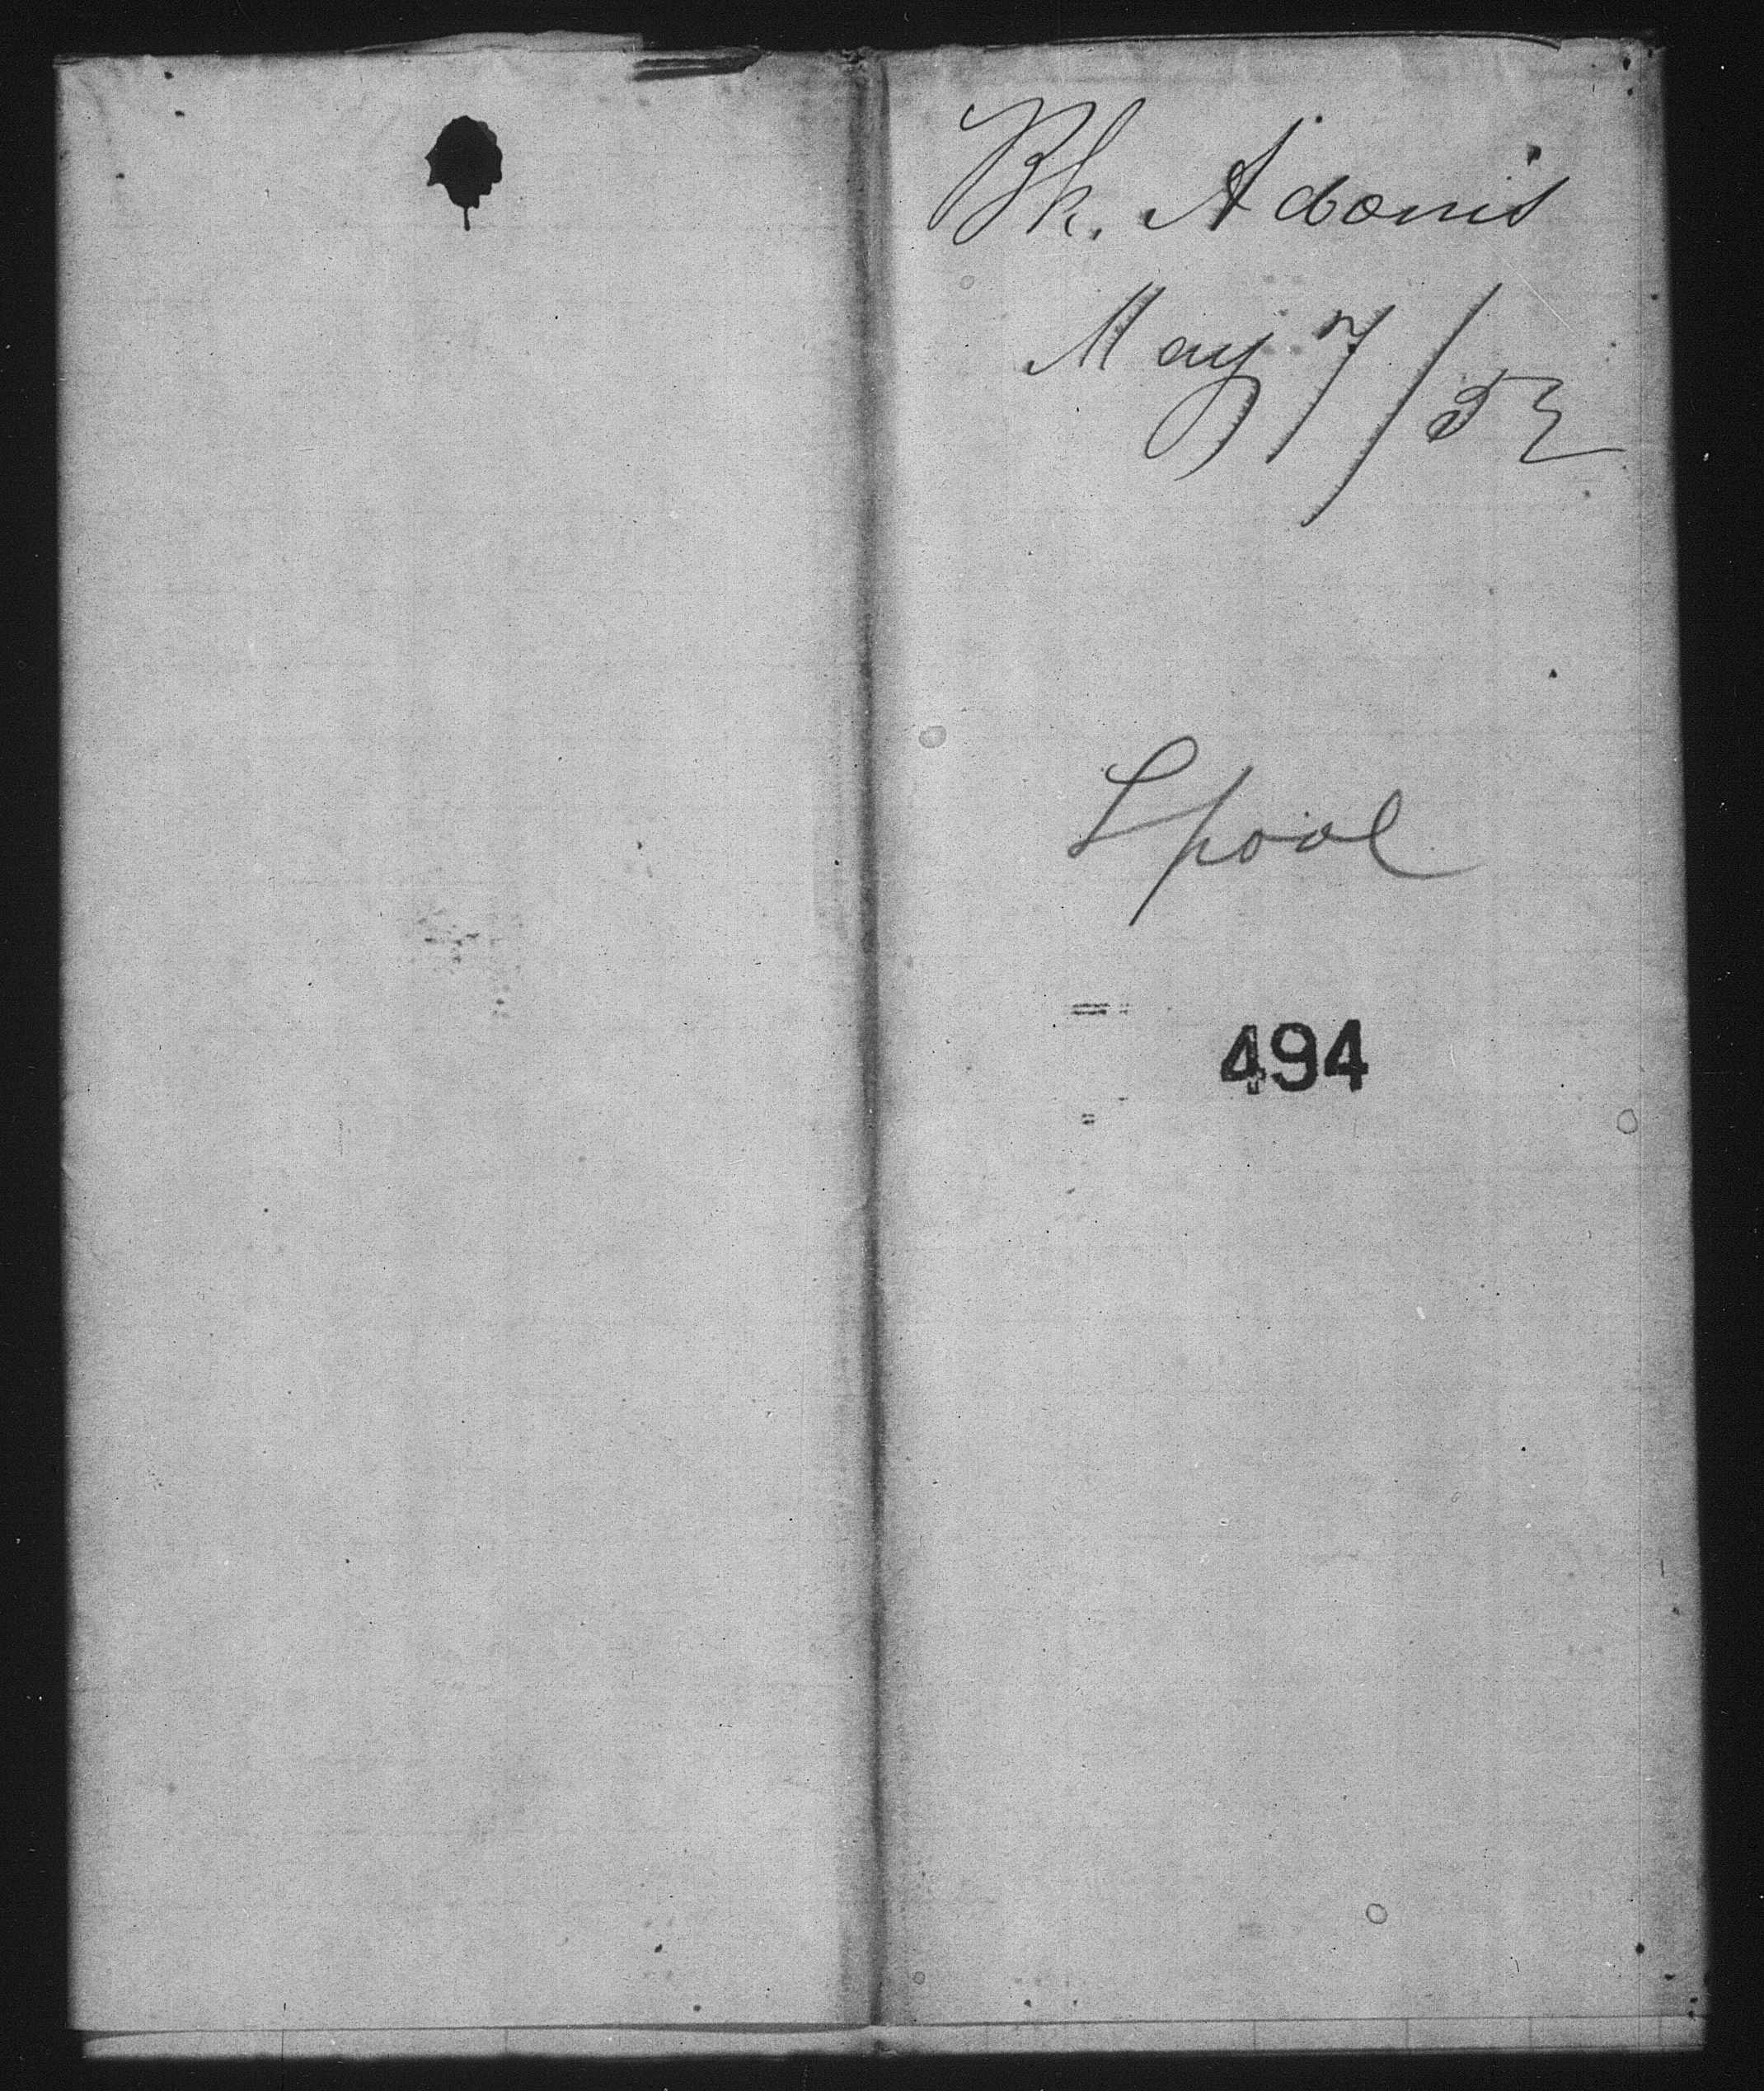 Bk. Adonis
May 7/52
Lpool
494